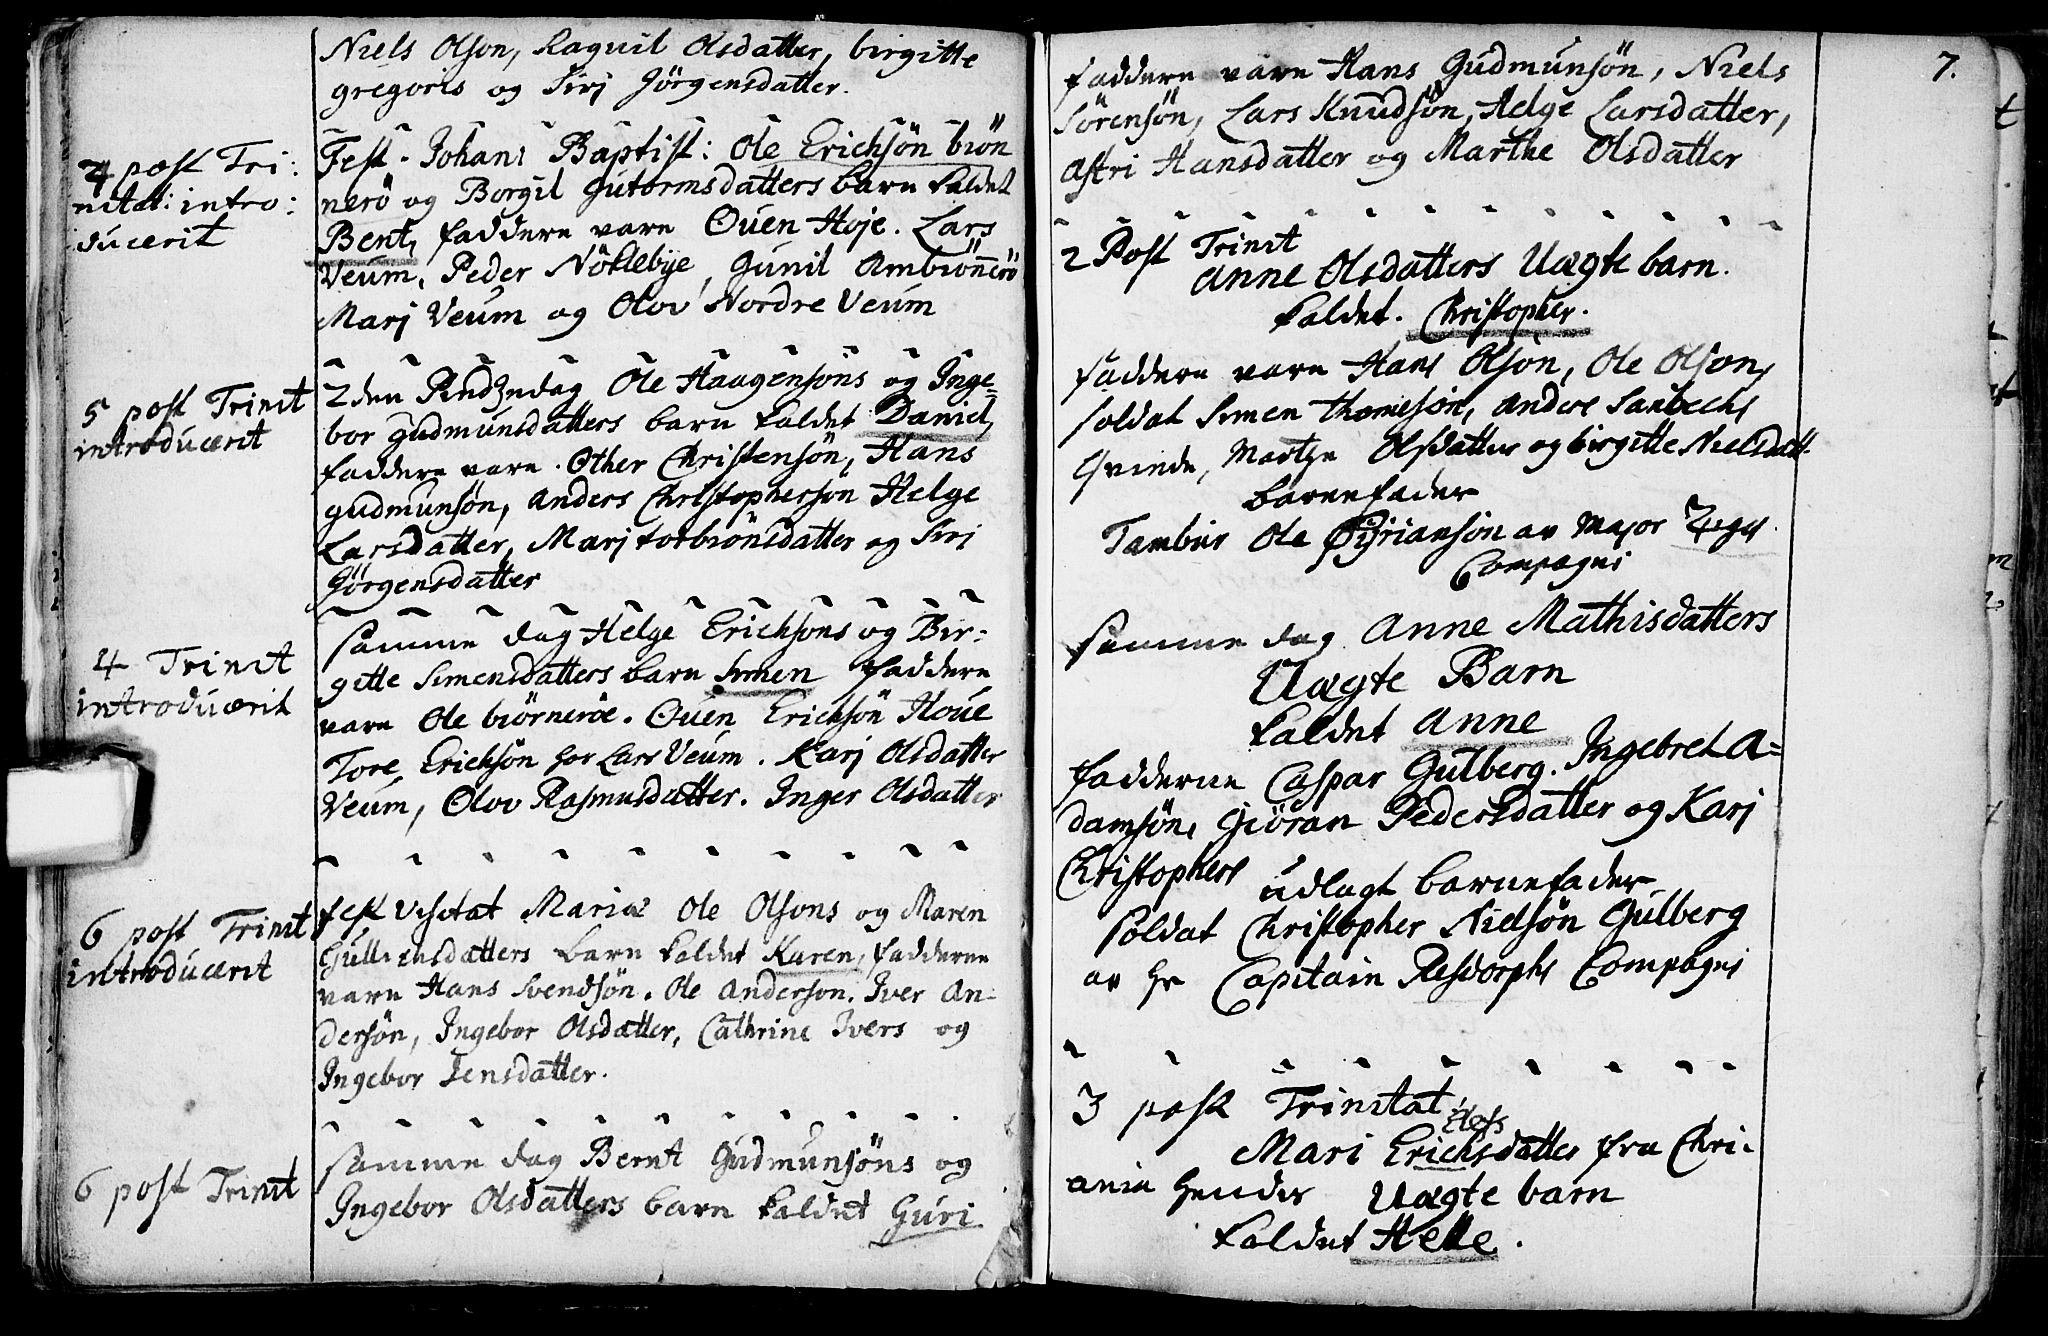 Niels Olson, Raguil Olsdatter, birgitte
gregoris og Sirj Jörgensdatter.
4 post Tri:
nitat: intro:
ducerit
Fest. Johans Baptist: Ole Erichsön brön
nerö og Borgil Gutormsdatters barn kaldet
Bent, faddere vare Ouen Hoje. Lars
Veum, Peder Nöklebye, Gunil Ambrönnerö
Marj Veum og Olov Nordre Veum
5 post Trinit
introducerit
2den Pindzedag Ole Haagensöns og Inge=
bor gudmunsdatters barn kaldet Daniel,
faddere vare. Other Christensön, Hans
gudmunsön, Anders Christophersön Helge
Larsdatter, Marj torbiönsdatter og Siri
Görgensdatter
4 Trinit
introducerit
samme dag Helge Erichsöns og Bir=
gitte Simensdatters barn Simen faddere
vare Ole biörneröe. Ouen Erichsön Houe
Tore Erichsön hos Lars Veum. Karj Olsdatter
Veum, Olov Rasmusdatter. Inger Olsdatter
6 post Trinit
introducerit
fest Visitat Mariæ Ole Olsons og Maren
datters barn kaldet Karen, faddere
vare Hans Svendsön. Ole Anderson. Iver An-
dersön, Ingebor Olsdatter, Cathrine Ivers og
Ingebor Jensdatter.
6 post Trinit
samme dag Bernt Gudmunsöns og
Ingebor Olsdatters barn kaldet Guri
7.
faddere vare Hans Gudmunsön, Niels
Sörensön, Lars Knudsön, Helge Larsdatter,
Astri Hansdatter og Marthe Olsdatter
2 Post Trinit
Anne Olsdatters Uægte barn.
kaldet. Christopher.
faddere vare Hans Olsön, Ole Olson,
soldat Simen thomesön, Anders
qvinde, Olsdatter og birgitte Nielsdatt.
barnefader
Tambur Ole av Major
Compagni
samme dag Anne Mathisdatters
Uægte Barn
kaldet Anne
fadderne Caspar Gulberg. Ingebret A=
damsön, Giöran Pedersdatter og Karj
Christophers udlagt barnefader
soldat Christopher Nielsön Gulberg
av Hr Capitain Resdorphs Compagni
3 post Trinitat
Mari Erichsdatter fra Chri-
ania Uægte barn
kaldet Helle.